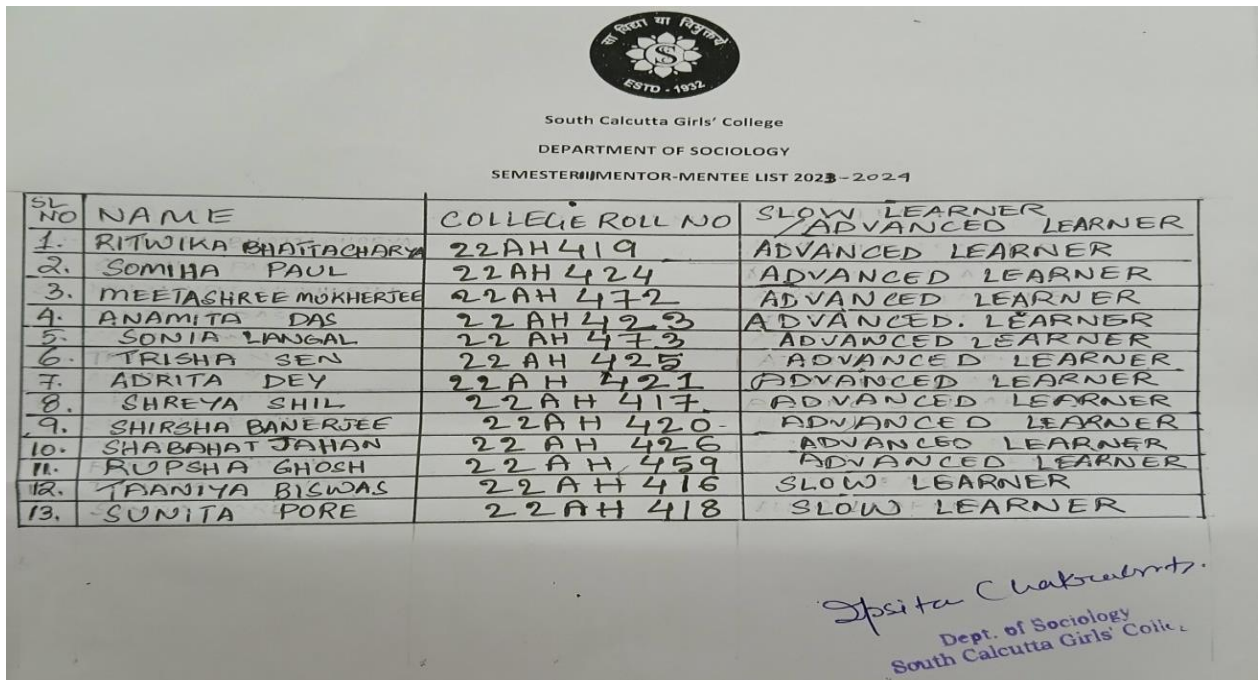 सा विद्या या विमुक्तये
S
ESTD - 1932
South Calcutta Girls' College
DEPARTMENT OF SOCIOLOGY
SEMESTER III MENTOR-MENTEE LIST 2023-2024
SL NO NAME COLLEGE ROLL NO SLOW LEARNER / ADVANCED LEARNER
1. RITWIKA BHATTACHARYA 22AH419 ADVANCED LEARNER
2. SOMIHA PAUL 22AH424 ADVANCED LEARNER
3. MEETASHREE MUKHERJEE 22AH 472 ADVANCED LEARNER
4. ANAMITA DAS 22 AH 423 ADVANCED. LEARNER
5. SONIA LANGAL 22 AH 473 ADVANCED LEARNER
6. TRISHA SEN 22 AH 425 ADVANCED LEARNER
7. ADRITA DEY 22AH 421 ADVANCED LEARNER
8. SHREYA SHIL 22AH 417. ADVANCED LEARNER
9. SHIRSHA BANERJEE 22AH 420- ADVANCED LEARNER
10. SHABAHAT JAHAN 22 AH 426 ADVANCED LEARNER
11. RUPSHA GHOSH 22AH 459 ADVANCED LEARNER
12. TAANIYA BISWAS 22AH 416 SLOW LEARNER
13. SUNITA PORE 22AH 418 SLOW LEARNER
Ipsita Chakraborty.
Dept. of Sociology
South Calcutta Girls'